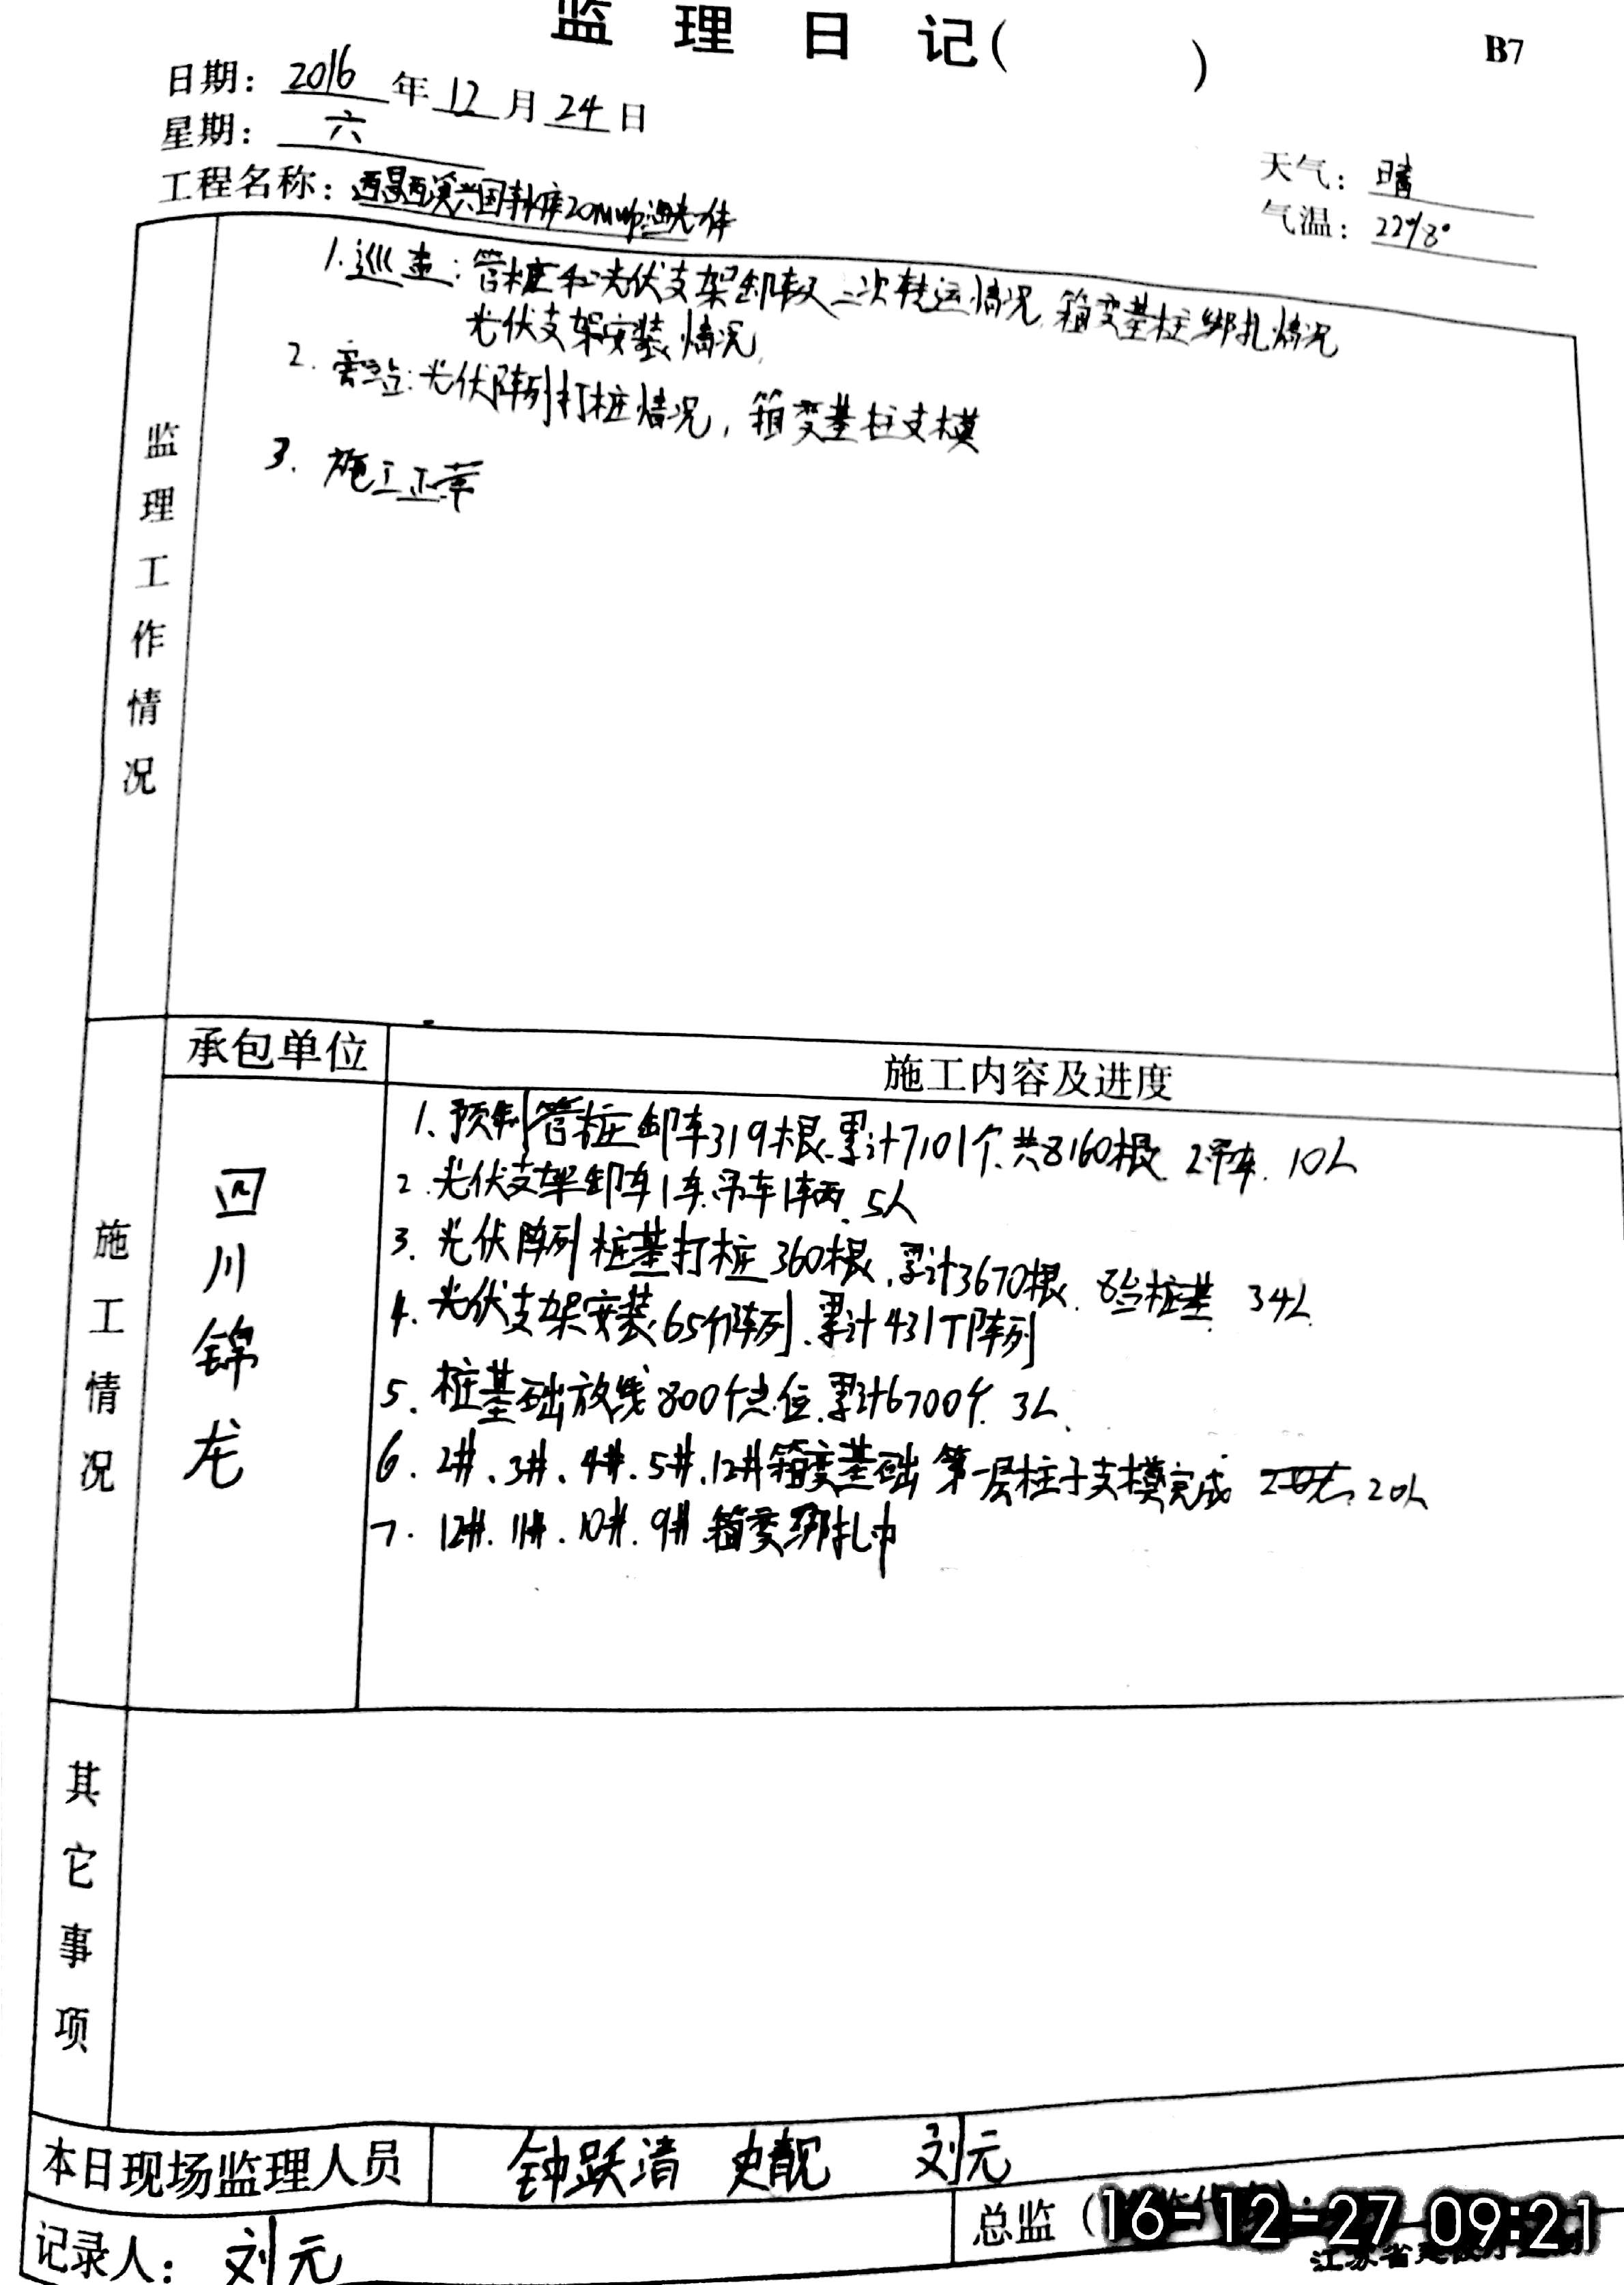 监理日记(　　)
B7
日期: 2016年12月24日
星期: 六
天气: 晴
工程名称: 西昌西溪兴国水库20MWp渔光一体
气温: 22°/8°
监理工作情况
1.巡查:管桩和光伏支架卸车及二次转运情况,箱变基柱绑扎情况
光伏支架安装情况
2.旁站:光伏阵列打桩情况,箱变基柱支模
3.施工正常
施工情况
承包单位
施工内容及进度
四川锦龙
1、预制管桩卸车319根.累计7101个.共8160根 2吊车.10人
2.光伏支架卸车1车.吊车1辆.5人
3.光伏阵列桩基打桩360根,累计3670根. 桩基 34人
4.光伏支架安装65个阵列.累计431个阵列
5、桩基础放线800个点位.累计6700个.3人
6.2#、3#、4#、5#、12#箱变基础第一层柱子支模完成 20人
7.12#.11#.10#.9#.箱变绑扎中
其它事项
本日现场监理人员
钟跃清 史靓 刘元
记录人: 刘元
总监(
16-12-27 09:21
江苏省建